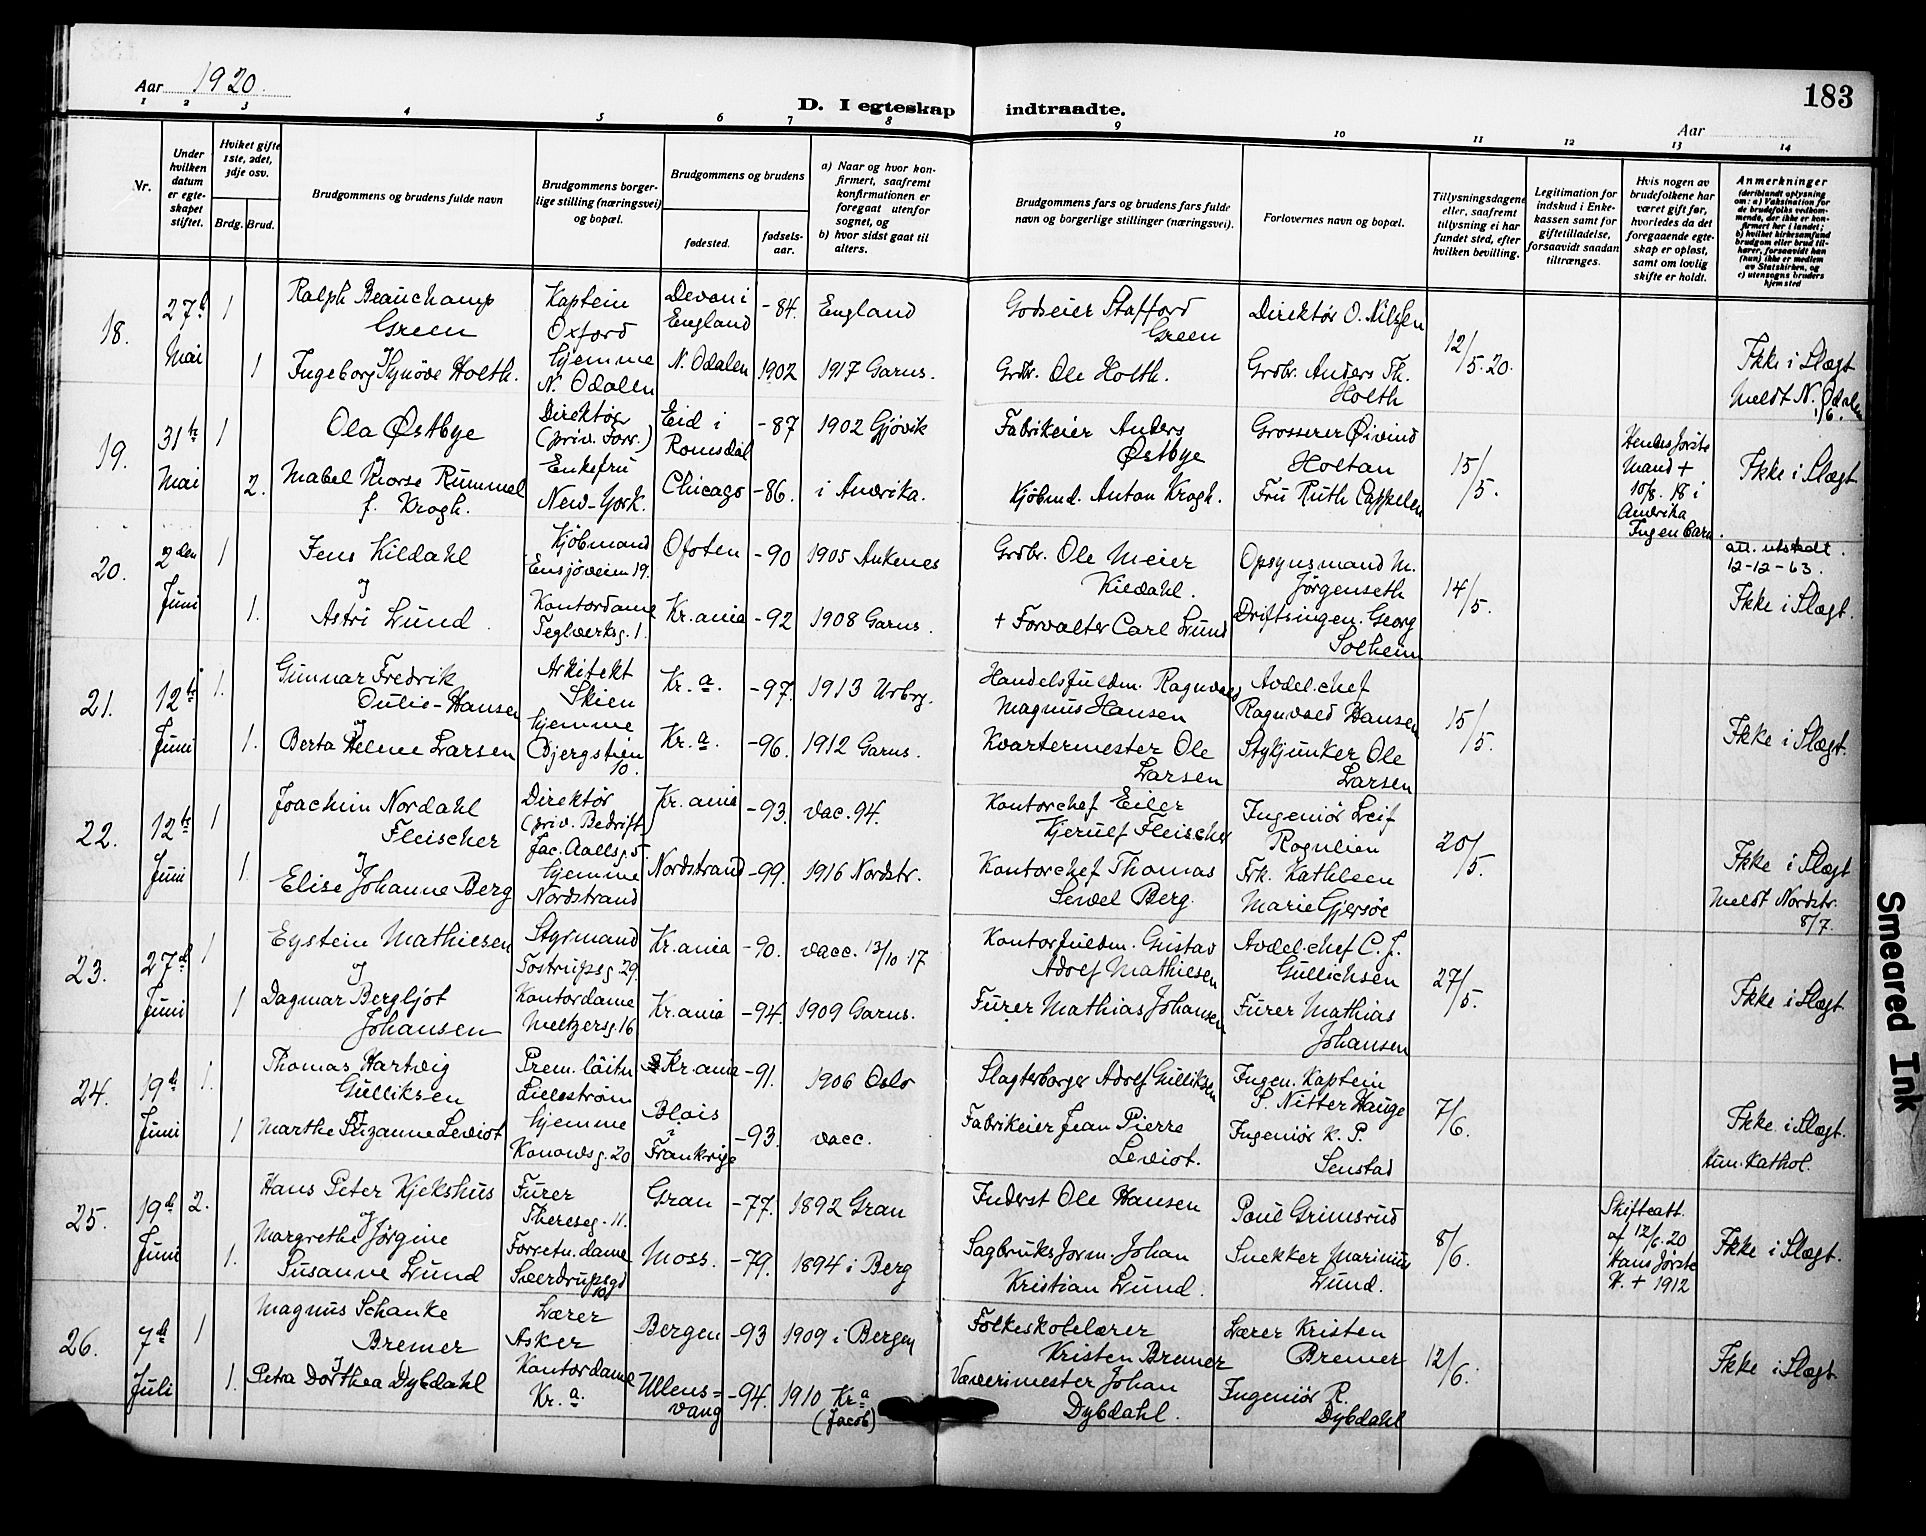 Aar 1920.
183
D. I egteskap indtraadte.
Aar
1 2 3 4 5 6 7 8 9 10 11 12 13 14
Nr.
Under hvilken datum er egteskapet stiftet.
Hvilket gifte 1ste, 2det, 3dje osv.
Brdg. Brud.
Brudgommens og brudens fulde navn
Brudgommens borgerlige stilling (næringsvei) og bopæl.
Brudgommens og brudens
fødested.
fødselsaar.
a) Naar og hvor konfirmert, saafremt konfirmationen er foregaat utenfor sognet, og
b) hvor sidst gaat til alters.
Brudgommens fars og brudens fars fulde navn og borgerlige stillinger (næringsvei).
Forlovernes navn og bopæl.
Tillysningsdagene eller, saafremt tillysning ei har fundet sted, efter hvilken bevilling.
Legitimation for indskud i Enkekassen samt for giftetilladelse, forsaavidt saadan tiltrænges.
Hvis nogen av brudefolkene har været gift før, hvorledes da det foregaaende egteskap er opløst, samt om lovlig skifte er holdt.
Anmerkninger
(deriblandt oplysning om: a) Vaksination for de brudefolks vedkommende, der ikke er konfirmert her i landet; b) hvilket kirkesamfund brudgom eller brud tilhører, forsaavidt han (hun) ikke er medlem av Statskirken, og c) utensogns bruders hjemsted
18. 27d Mai
1 Ralph Beauchamp Green Kaptein Oxford Devon i England -84. England Godseier Stafford Green Direktør O. Nilsen 12/5.20.
og
1 Ingeborg Synøve Holth. hjemme N. Odalen N. Odalen 1902 1917 Garns. Grdbr. Ole Holth. Grdbr. Anders Th. Holth Ikke i Slægt
Meldt N. Odalen 1/6.
19. 31te Mai
1 Ola Østbye Direktør (priv. Forr.) Eid i Romsdal -87 1902 Gjøvik Fabrikeier Anders Østbye Grosserer Øivind Holtan 15/5.
og
2. Mabel Morse Rummel f. Krogh. Enkefru New-York. Chicago -86. i Amerika. Kjøbmd. Anton Krogh. Fru Ruth Cappelen
Hendes første Mand + 10/8. 18 i Amerika Ingen Barn
Ikke i Slægt
20. 2den Juni
1 Jens Kildahl Kjøbmand Ensjøveien 19. Ofoten -90 1905 Ankenes Grdbr. Ole Meier Kildahl. Opsynsmand M. Jørgenseth 14/5.
att. utstedt. 12-12-63.
og
1. Astri Lund. Kontordame Teglverksg. 1. Kr.ania -92 1908 Garns. + Forvalter Carl Lund Driftsingen. Georg Solheim Ikke i Slægt.
21. 12te Juni
1. Gunnar Fredrik Oulie-Hansen Arkitekt Skien Kr.a. -97. 1913 Urbrg. Handelsfuldm. Ragnvald Magnus Hansen Avdel.chef Ragnvald Hansen 15/5.
og
1. Berta Helene Larsen hjemme Bjergstien 10. Kr.a. -96. 1912 Garns. Kvartermester Ole Larsen Stykjunker Ole Larsen Ikke i Slægt.
22. 12te Juni
1 Joachim Nordahl Fleischer Direktør (priv. Bedrift) Jac. Aallsg. 5. Kr.ania -93. vac. 94. Kontorchef Eiler Kjerulf Fleischer Ingeniør Leif Rognlien 20/5.
og
1. Elise Johanne Berg hjemme Nordstrand Nordstrand -99. 1916 Nordstr. Kontorchef Thomas Sewel Berg. Frk. Kathleen Marie Gjersøe Ikke i Slægt
Meldt Nordstr. 8/7.
23. 27d Juni
1 Eystein Mathiesen Styrmand Tostrupsg. 29. Kr.ania -90. vacc. 13/10.17 Kontorfuldm. Gustav Adolf Mathiesen Avdel.chef C. J. Gullichsen 27/5.
og
1 Dagmar Bergljot Johansen Kontordame Meltzersg. 16 Kr.ania -94. 1909 Garns. Furer Mathias Johansen Furer Mathias Johansen Ikke i Slægt
24. 19d Juni
1. Thomas Hartvig Gulliksen Prem. løitn Lillestrøm Kr.ania -91. 1906 Oslo Slagterborger Adolf Gulliksen Ingen. Kaptein S. Nitter Hauge 7/6.
og
1 Marthe Suzanne Leviot hjemme Konowsg. 20 Blois i Frankrige -93. vacc. Fabrikeier Jean Pierre Leviot. Ingeniør K. P. Senstad Ikke i Slægt.
Hun. Kathol.
25. 19d Juni
2. Hans Peter Kjekshus Furer Theresesg. 11. Gran -77. 1892 Gran Inderst Ole Hansen Poul Grimsrud 8/6.
og
1. Margrethe Jørgine Susanne Lund Forretn. dame Sverdrupsgd 10 Moss. -79. 1894 i Berg Sagbruksform. Johan Kristian Lund. Snekker Marinius Lund.
Skifteatt. af 12/6.20 Hans første H. + 1912
Ikke i Slægt.
26. 7d Juli
1 Magnus Schanke Bremer Lærer Asker Bergen -93 1909 i Bergen Folkeskolelærer Kristen Bremer Lærer Kristen Bremer 12/6.
og
1. Petra Dorthea Dybdahl Kontordame Kr.a. Ullensvang -94. 1910 Kr.a (Jacob) Væverimester Johan Dybdahl. Ingeniør R. Dybdahl Ikke i Slægt
Smeared Ink